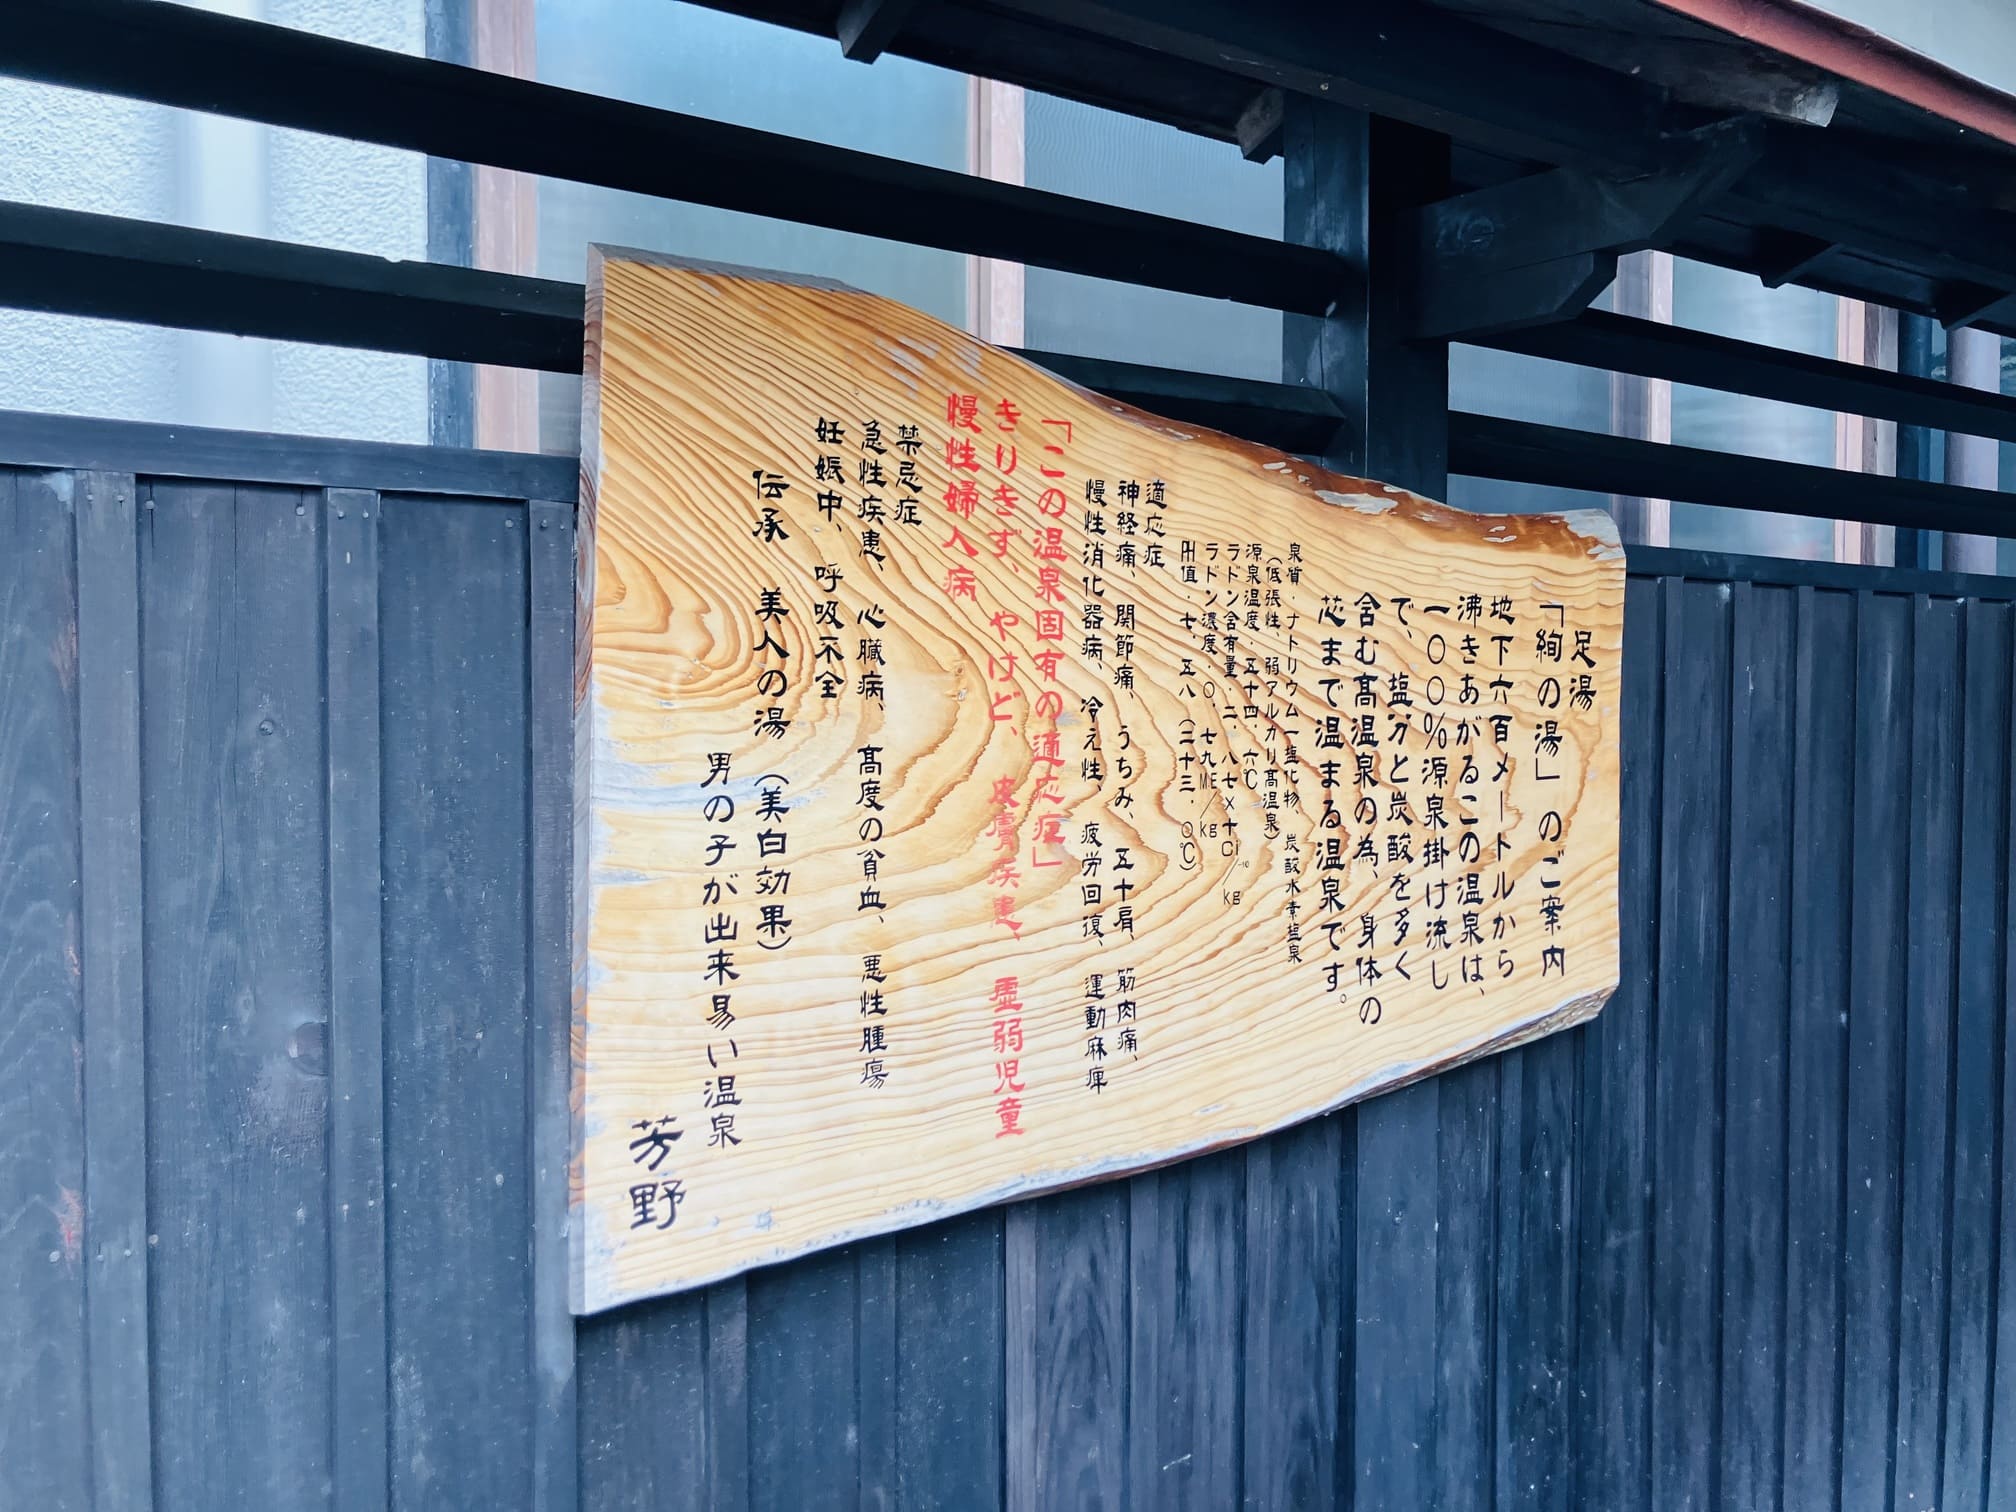 足湯
「絢の湯」のご案内
地下六百メートルから
沸きあがるこの温泉は、
一〇〇%源泉掛け流し
で、塩分と炭酸を多く
含む高温泉の為、身体の
芯まで温まる温泉です。
泉質・ナトリウムー塩化物、炭酸水素塩泉
(低張性、弱アルカリ高温泉)
源泉温度・五十四.六℃
ラドン含有量・二.八七×十⁻¹⁰Ci/kg
ラドン濃度・〇.七九ME/kg
PH値・七.五八(二十三.〇℃)
適応症
神経痛、関節痛、うちみ、五十肩、筋肉痛、
慢性消化器病、冷え性、疲労回復、運動麻痺
「この温泉固有の適応症」
きりきず、やけど、皮膚疾患、虚弱児童
慢性婦人病
禁忌症
急性疾患、心臓病、高度の貧血、悪性腫瘍
妊娠中、呼吸不全
伝承 美人の湯(美白効果)
男の子が出来易い温泉
芳野